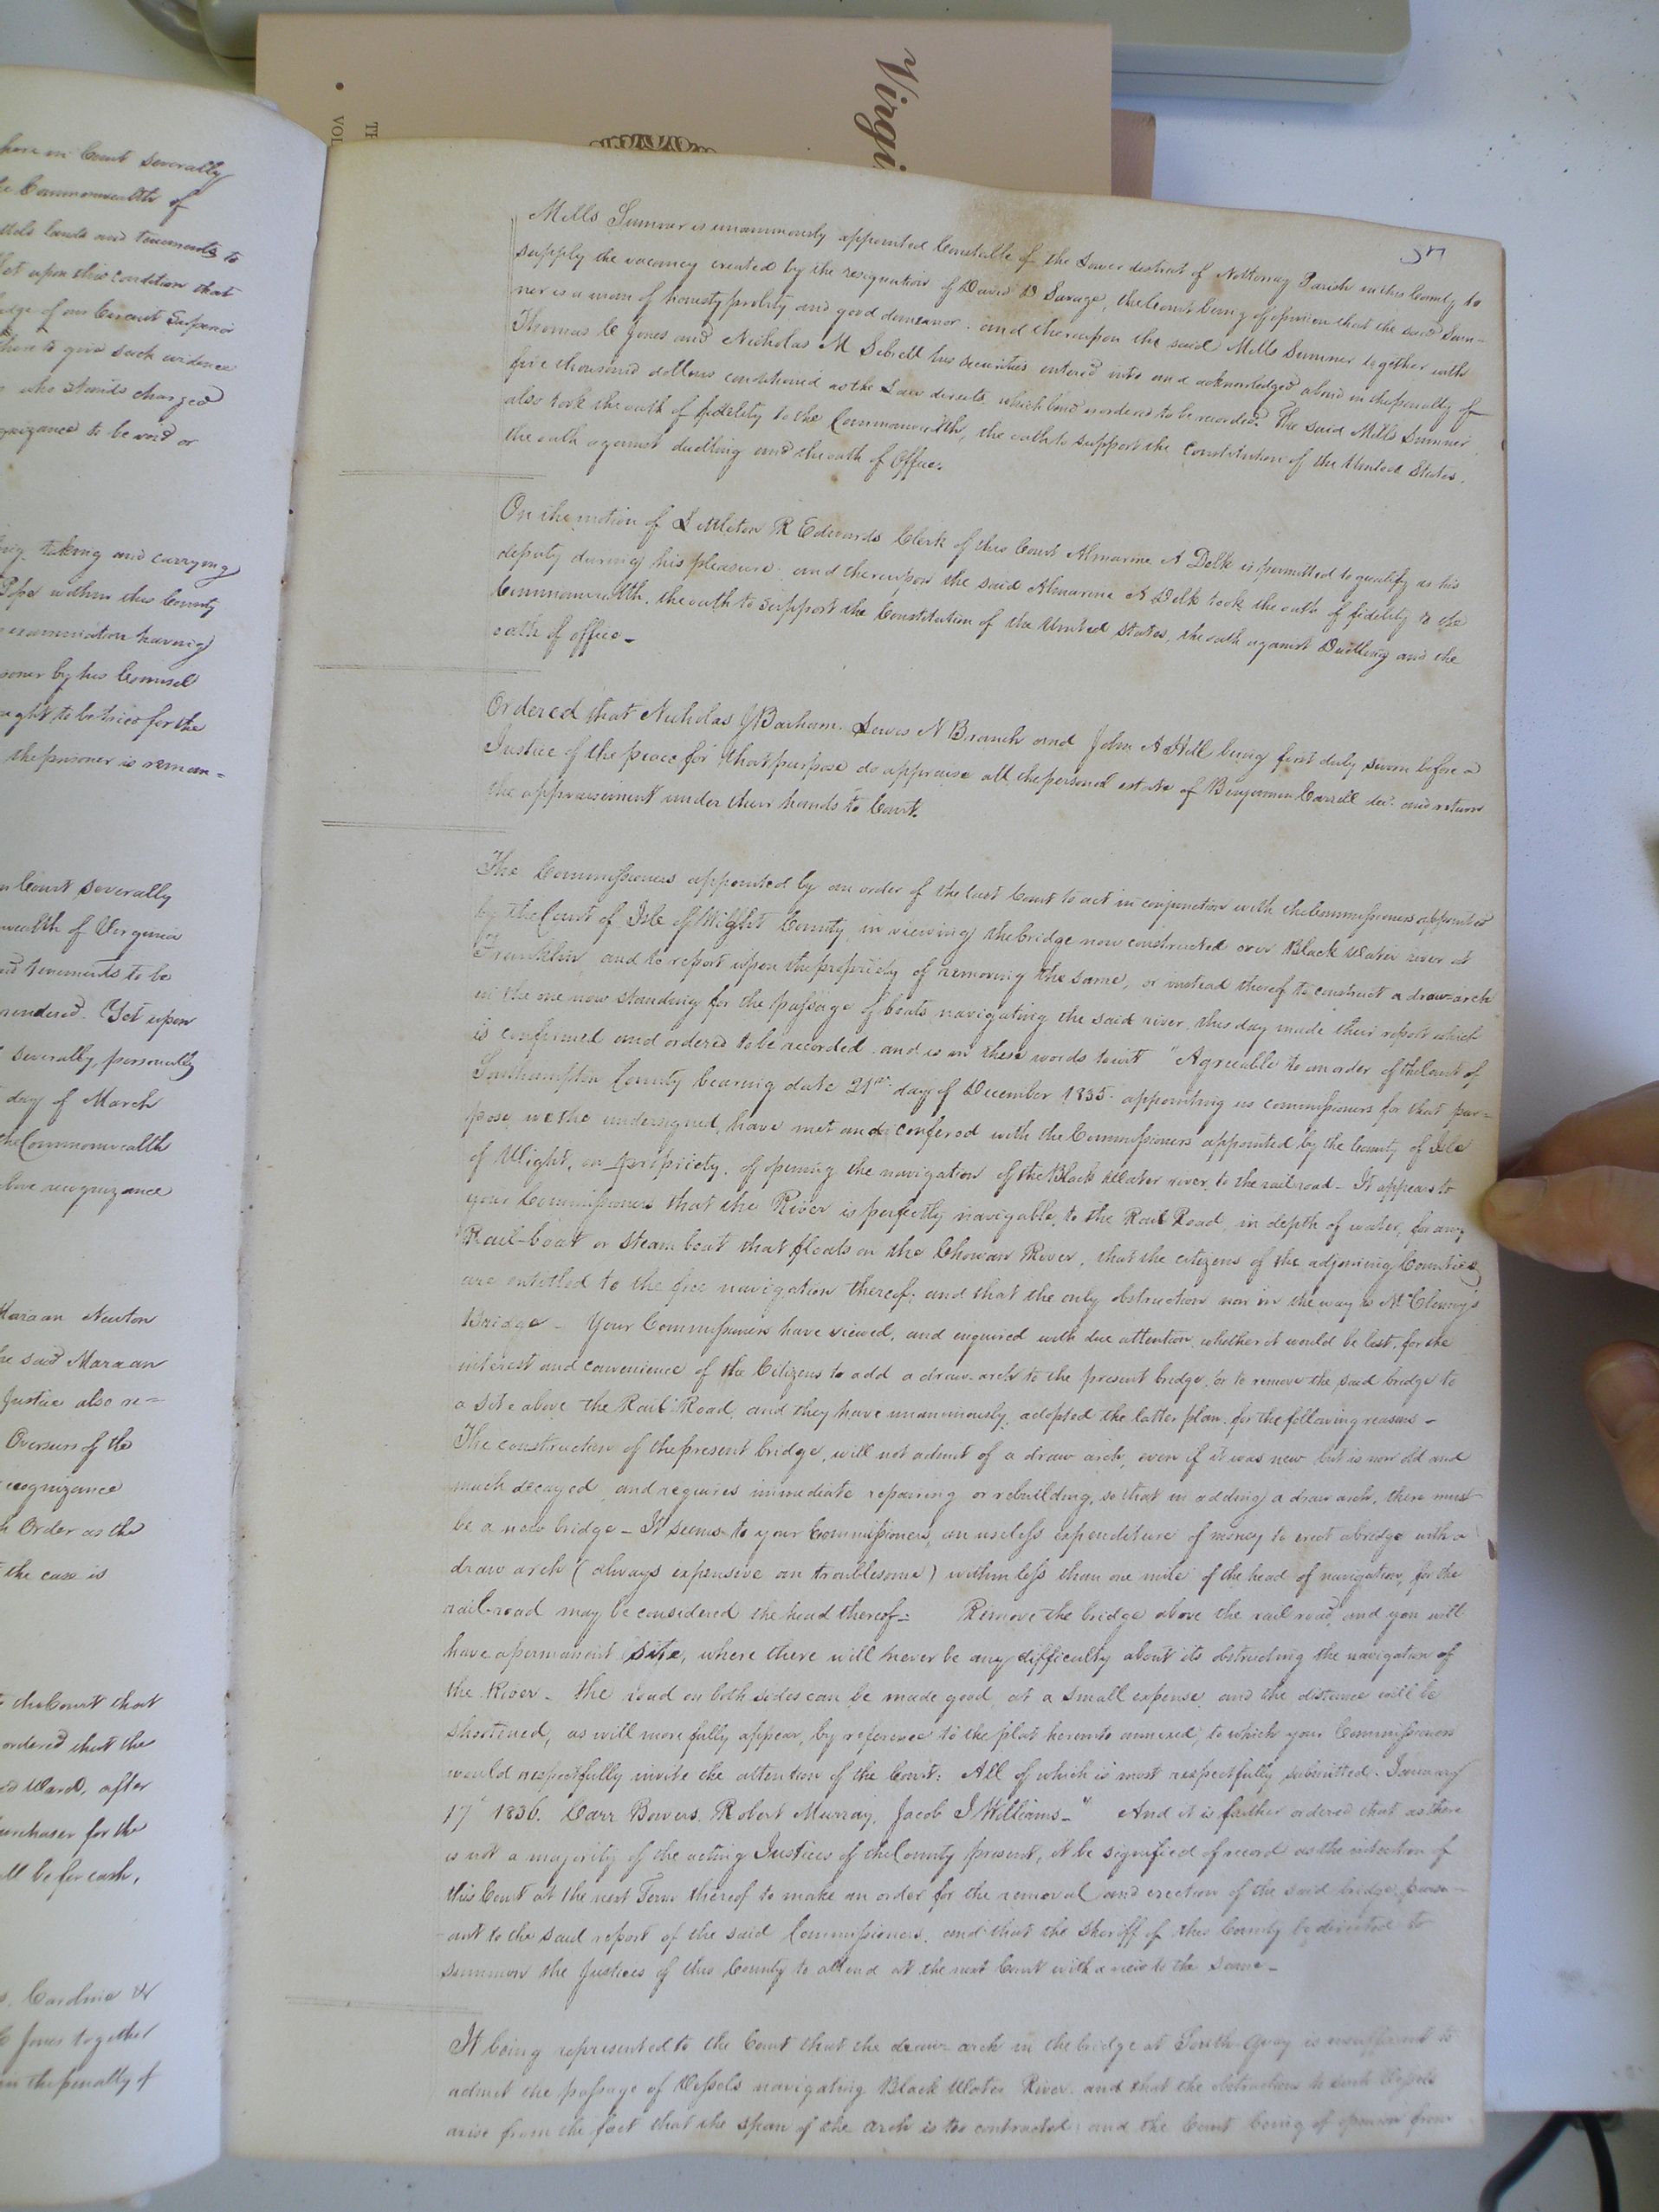 Virgi
VOL
TH
here in Court severally
the Commonwealth of
lands and tenements to
Yet upon this condition that
Judge of our Circuit Superior
there to give such evidence
who stands charged
recognizance to be void or
taking and carrying
Pope within this County
examination having
prisoner by his Counsel
ought to be tried for the
the prisoner is reman=
in Court severally
wealth of Virginia
and tenements to be
rendered. Yet upon
severally, personally
day of March
the Commonwealth
above recognizance
Maraan Newton
the said Maraan
Justice also re=
Overseers of the
recognizance
Order as the
the case is
to the Court that
ordered that the
Ward, after
purchaser for the
will be for cash,
Caroline &
C Jones together
in the penalty of
Mills Sumner is unanimously appointed Constable of the Lower district of Nottoway Parish in this County to
supply the vacancy created by the resignation of David D Savage, the Court being of opinion that the said Sum=
ner is a man of honesty probity and good demeanor. and thereupon the said Mills Sumner together with
Thomas C Jones and Nicholas M Sebrell his securities entered into and acknowledged a bond in the penalty of
five thousand dollars conditioned as the Law directs which bond is ordered to be recorded. The said Mills Sumner
also took the oath of fidelity to the Commonwealth, the oath to support the Constitution of the United States,
the oath against duelling and the oath of Office.
On the motion of Littleton R Edwards Clerk of this Court Almarine A Delk is permitted to qualify as his
deputy during his pleasure. and thereupon the said Almarine A Delk took the oath of fidelity to the
Commonwealth, the oath to support the Constitution of the United States, the oath against Duelling and the
oath of office -
Ordered that Nicholas J Barham. Lewis N Branch and John A Hill being first duly sworn before a
Justice of the peace for that purpose do appraise all the personal estate of Benjamin Carrell decd. and return
the appraisement under their hands to Court.
The Commissioners appointed by an order of the last Court to act in conjunction with the Commissioners appointed
by the Court of Isle of Wight County in viewing the bridge now constructed over Black Water river at
Franklin and to report upon the propriety of removing the same, or instead thereof to construct a draw arch
in the one now standing for the passage of boats navigating the said river, this day made their report which
is confirmed and ordered to be recorded and is in these words towit "Agreeable to an order of the Court of
Southampton County bearing date 21st day of December 1835 appointing us commissioners for that pur=
pose, we the undersigned, have met and confered with the Commissioners appointed by the County of Isle
of Wight, on propriety, of opening the navigation of the Black Water river, to the rail road - It appears to
your Commissioners that the River is perfectly navigable, to the Rail Road, in depth of water, for any
Rail-boat or steam boat that floats on the Chowan River, that the citizens of the adjoining Counties
are entitled to the free navigation thereof; and that the only obstruction now in the way is McClenny's
Bridge - Your Commissioners have viewed, and enquired with due attention, whether it would be best, for the
interest and convenience of the Citizens to add a draw-arch to the present bridge, or to remove the said bridge to
a site above the Rail Road, and they have unanimously, adopted the latter plan, for the following reasons -
The construction of the present bridge, will not admit of a draw arch, even if it was new but is now old and
much decayed, and requires immediate repairing or rebuilding, so that in adding a draw arch, there must
be a new bridge - It seems to your Commissioners, an useless expenditure of money to erect a bridge with a
draw arch (always expensive an troublesome) within less than one mile of the head of navigation, for the
rail-road may be considered the head thereof - Remove the bridge above the rail road, and you will
have a permanent site, where there will never be any difficulty about its obstructing the navigation of
the River - the road on both sides can be made good at a small expense and the distance will be
shortened, as will more fully appear, by reference to the plat hereunto annexed, to which your Commissioners
would respectfully invite the attention of the Court: All of which is most respectfully submitted. January
17th 1836. Carr Bowers. Robert Murray. Jacob J Williams -" And it is further ordered that as there
is not a majority of the acting Justices of the County present, it be signified of record as the intention of
this Court at the next Term thereof to make an order for the removal and erection of the said bridge pursu=
ant to the said report of the said Commissioners. and that the Sheriff of this County be directed to
summon the Justices of this County to attend at the next Court with a view to the same -
It being represented to the Court that the draw arch in the bridge at South Quay is insufficient to
admit the passage of Vessels navigating Black Water River. and that the obstructions to such Vessels
arise from the fact that the span of the arch is too contracted; and the Court being of opinion from